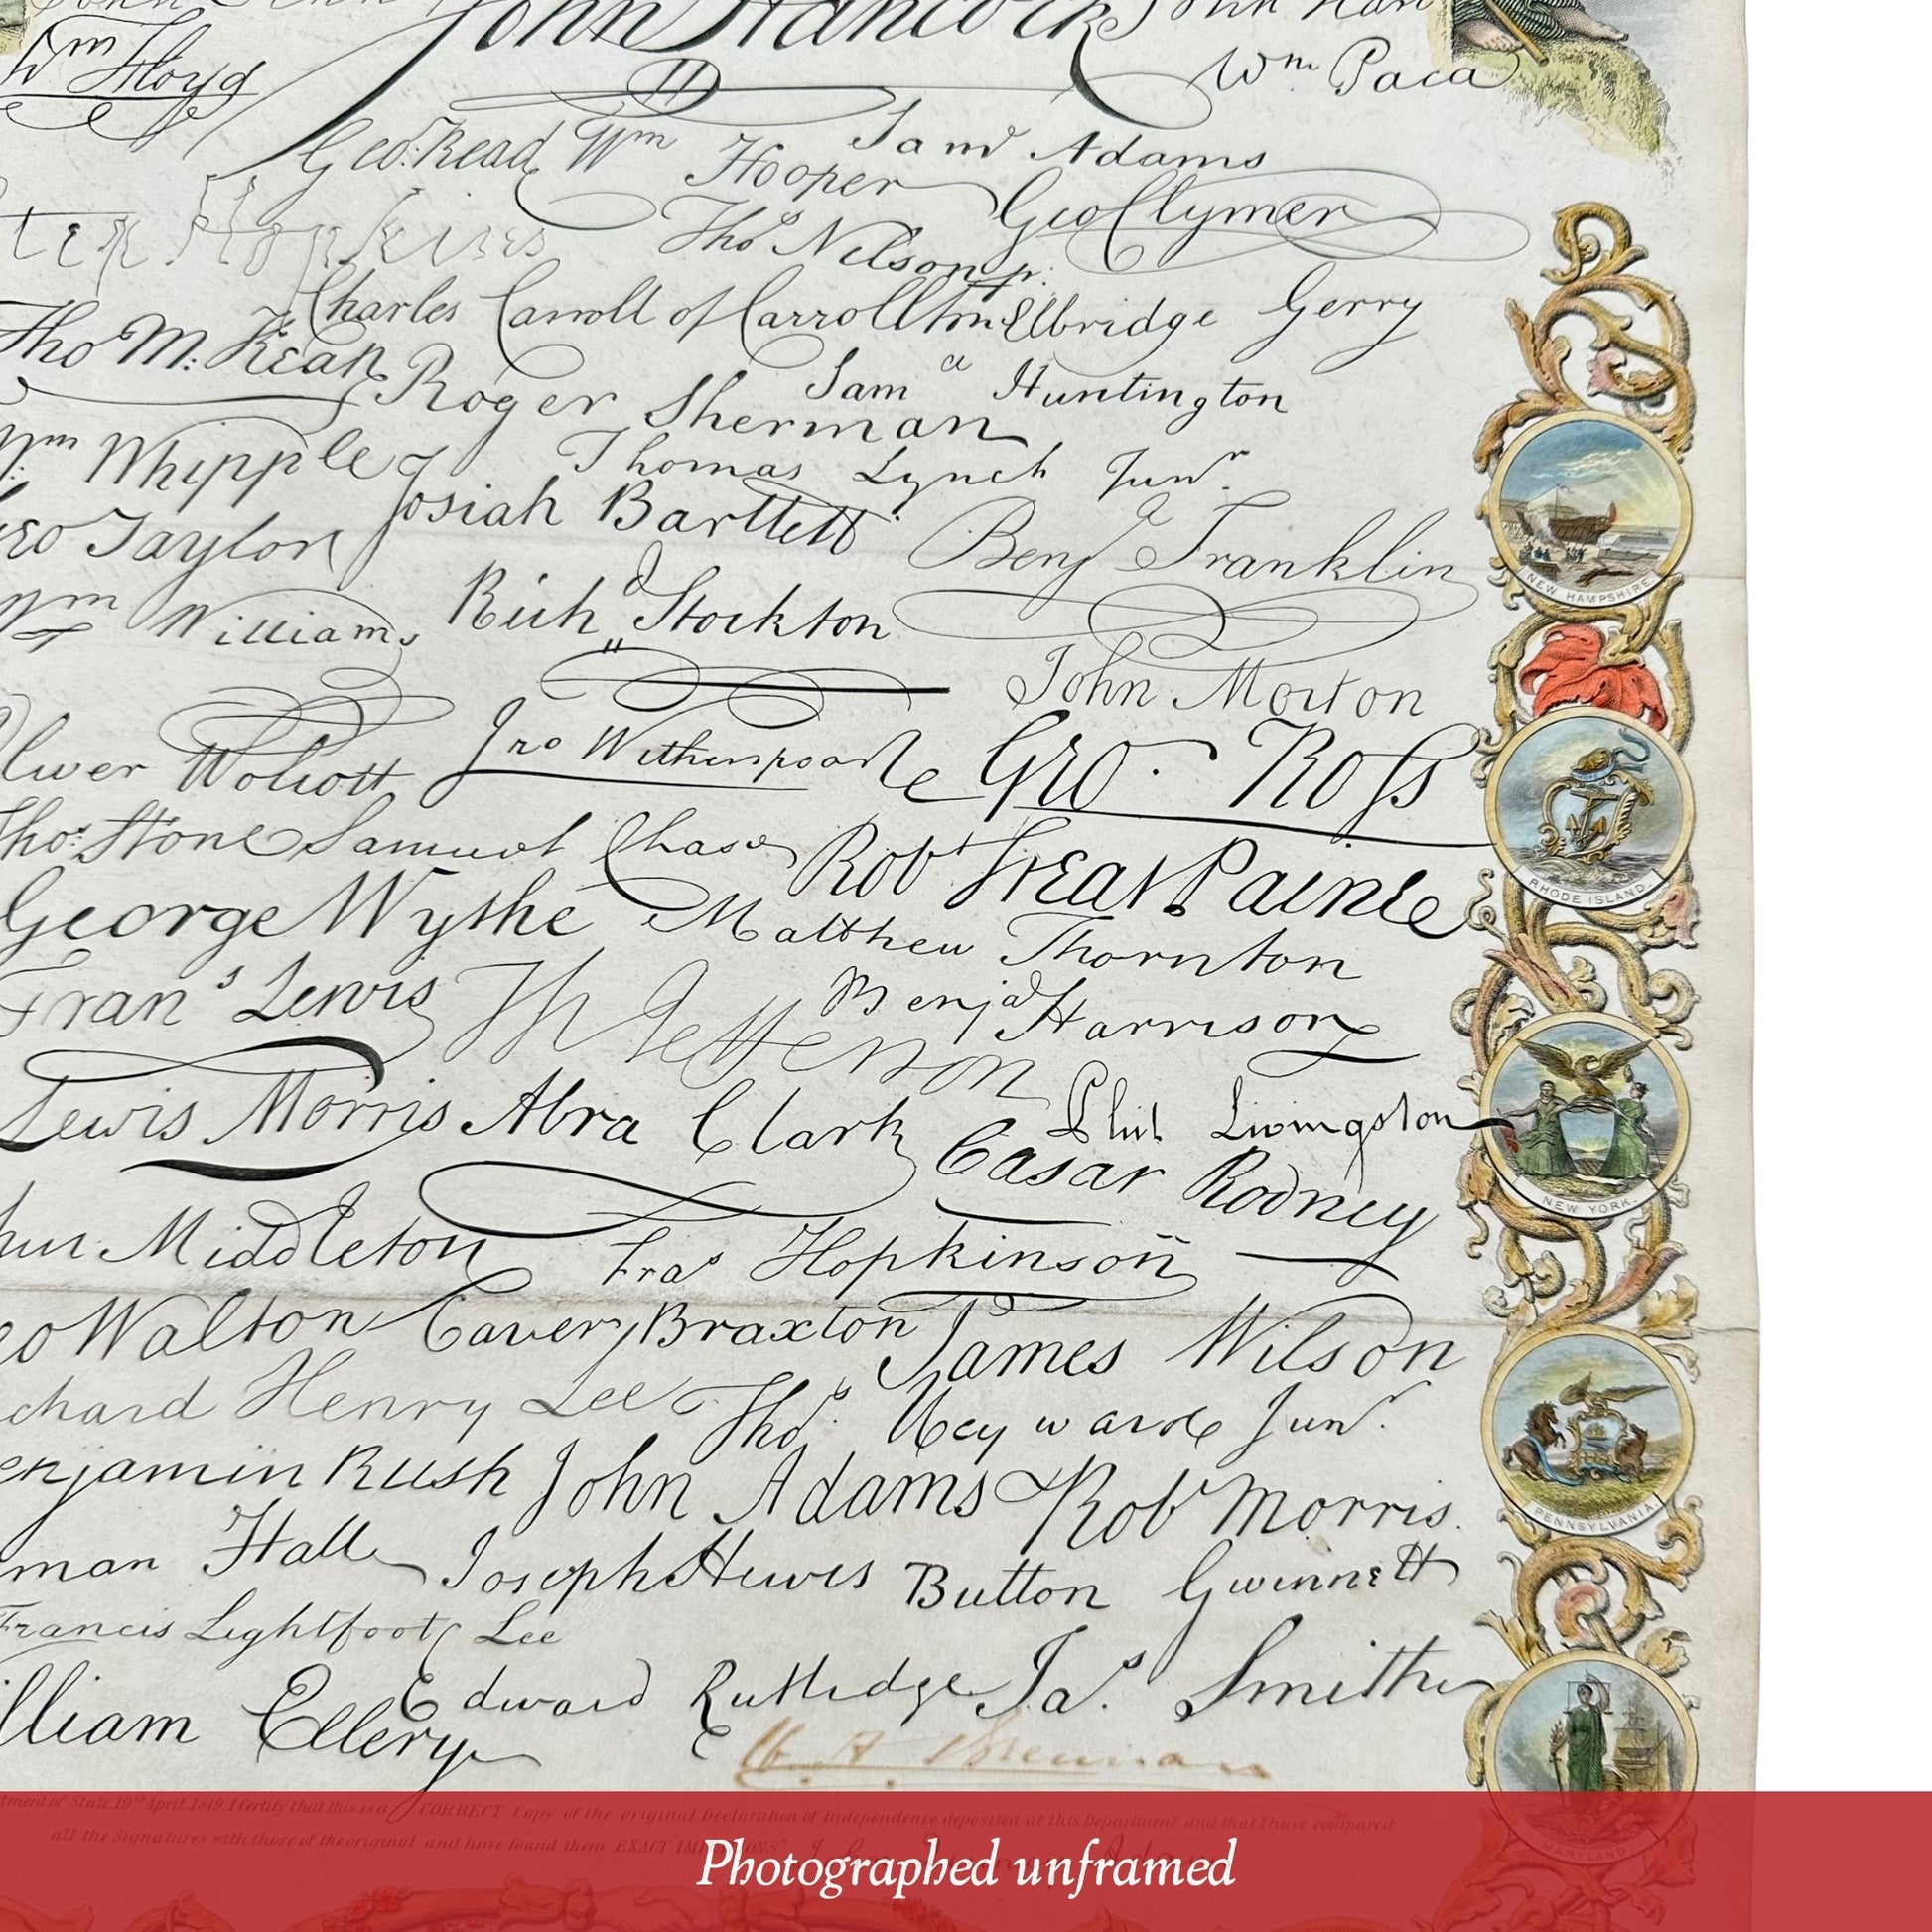 John Hancock
Wm Floyd
Wm Paca
Geo. Read
Wm Hooper
Saml Adams
Geo Clymer
Hopkins
Thos Nelson jr.
Charles Carroll of Carrollton
Elbridge Gerry
Tho M: Kean
Roger Sherman
Saml Huntington
Wm Whipple
Thomas Lynch Junr.
Josiah Bartlett
Geo Taylor
Benja Franklin
Richd Stockton
Wm Williams
John Morton
Oliver Wolcott
Jno Witherspoon
Geo. Ross
Thos. Stone
Samuel Chase
Robt Treat Paine
George Wythe
Matthew Thornton
Frans Lewis
Th Jefferson
Benja Harrison
Lewis Morris
Abra Clark
Phil. Livingston
Casar Rodney
Middleton
Fras Hopkinson
Geo Walton
Carter Braxton
James Wilson
Richard Henry Lee
Thos. Heyward Junr.
Benjamin Rush
John Adams
Robt Morris.
Hall
Joseph Hewes
Button Gwinnett
Francis Lightfoot Lee
William Ellery
Edward Rutledge
Jas. Smith
NEW HAMPSHIRE.
RHODE ISLAND.
NEW YORK.
PENNSYLVANIA
MARYLAND
tment of State 19th April. 1819. I Certify that this is a CORRECT Copy of the original Declaration of Independence deposited at this Department and that I have compared
all the Signatures with those of the original and have found them EXACT IMITATIONS"
Photographed unframed